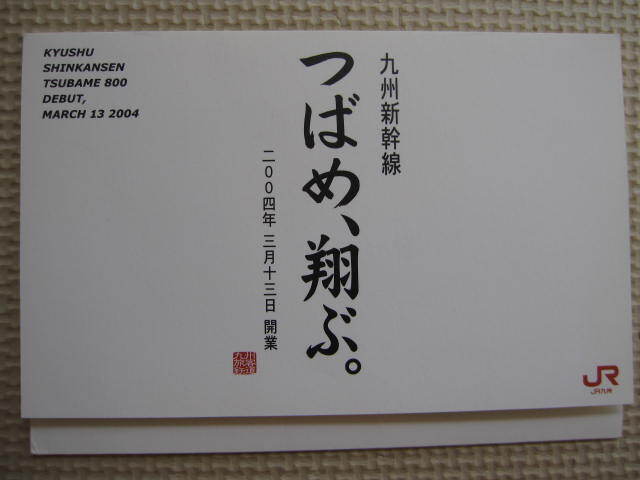 KYUSHU
SHINKANSEN
TSUBAME 800
DEBUT,
MARCH 13 2004
九州新幹線
つばめ、翔ぶ。
二〇〇四年 三月十三日 開業
JR
JR九州